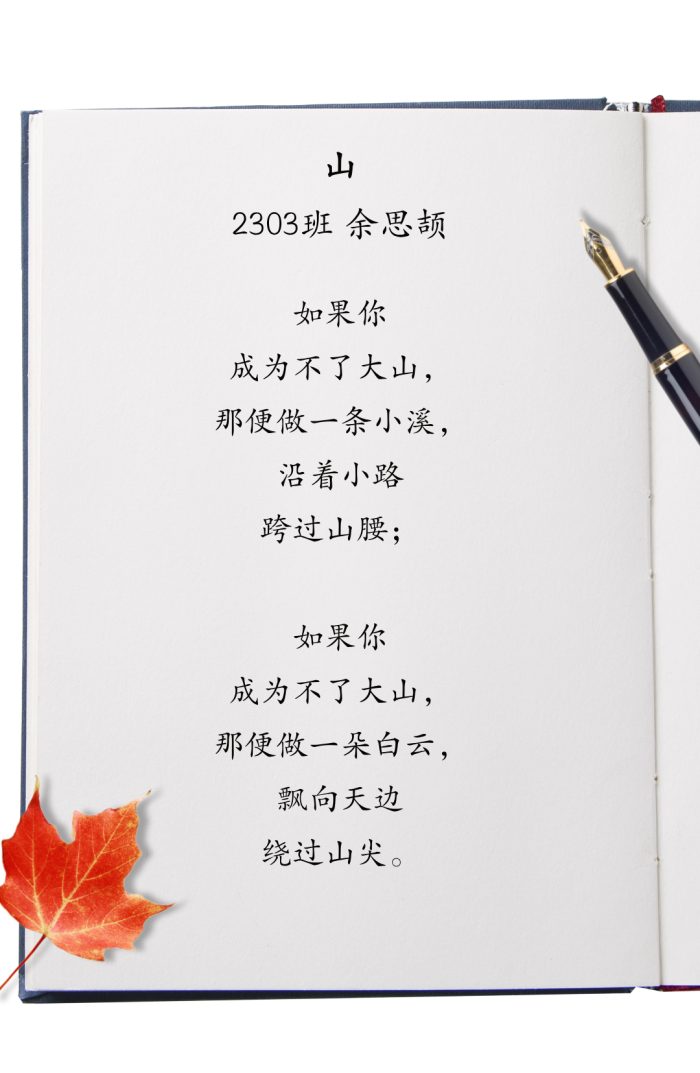 山
2303班 余思颉
如果你
成为不了大山，
那便做一条小溪，
沿着小路
跨过山腰；
如果你
成为不了大山，
那便做一朵白云，
飘向天边
绕过山尖。